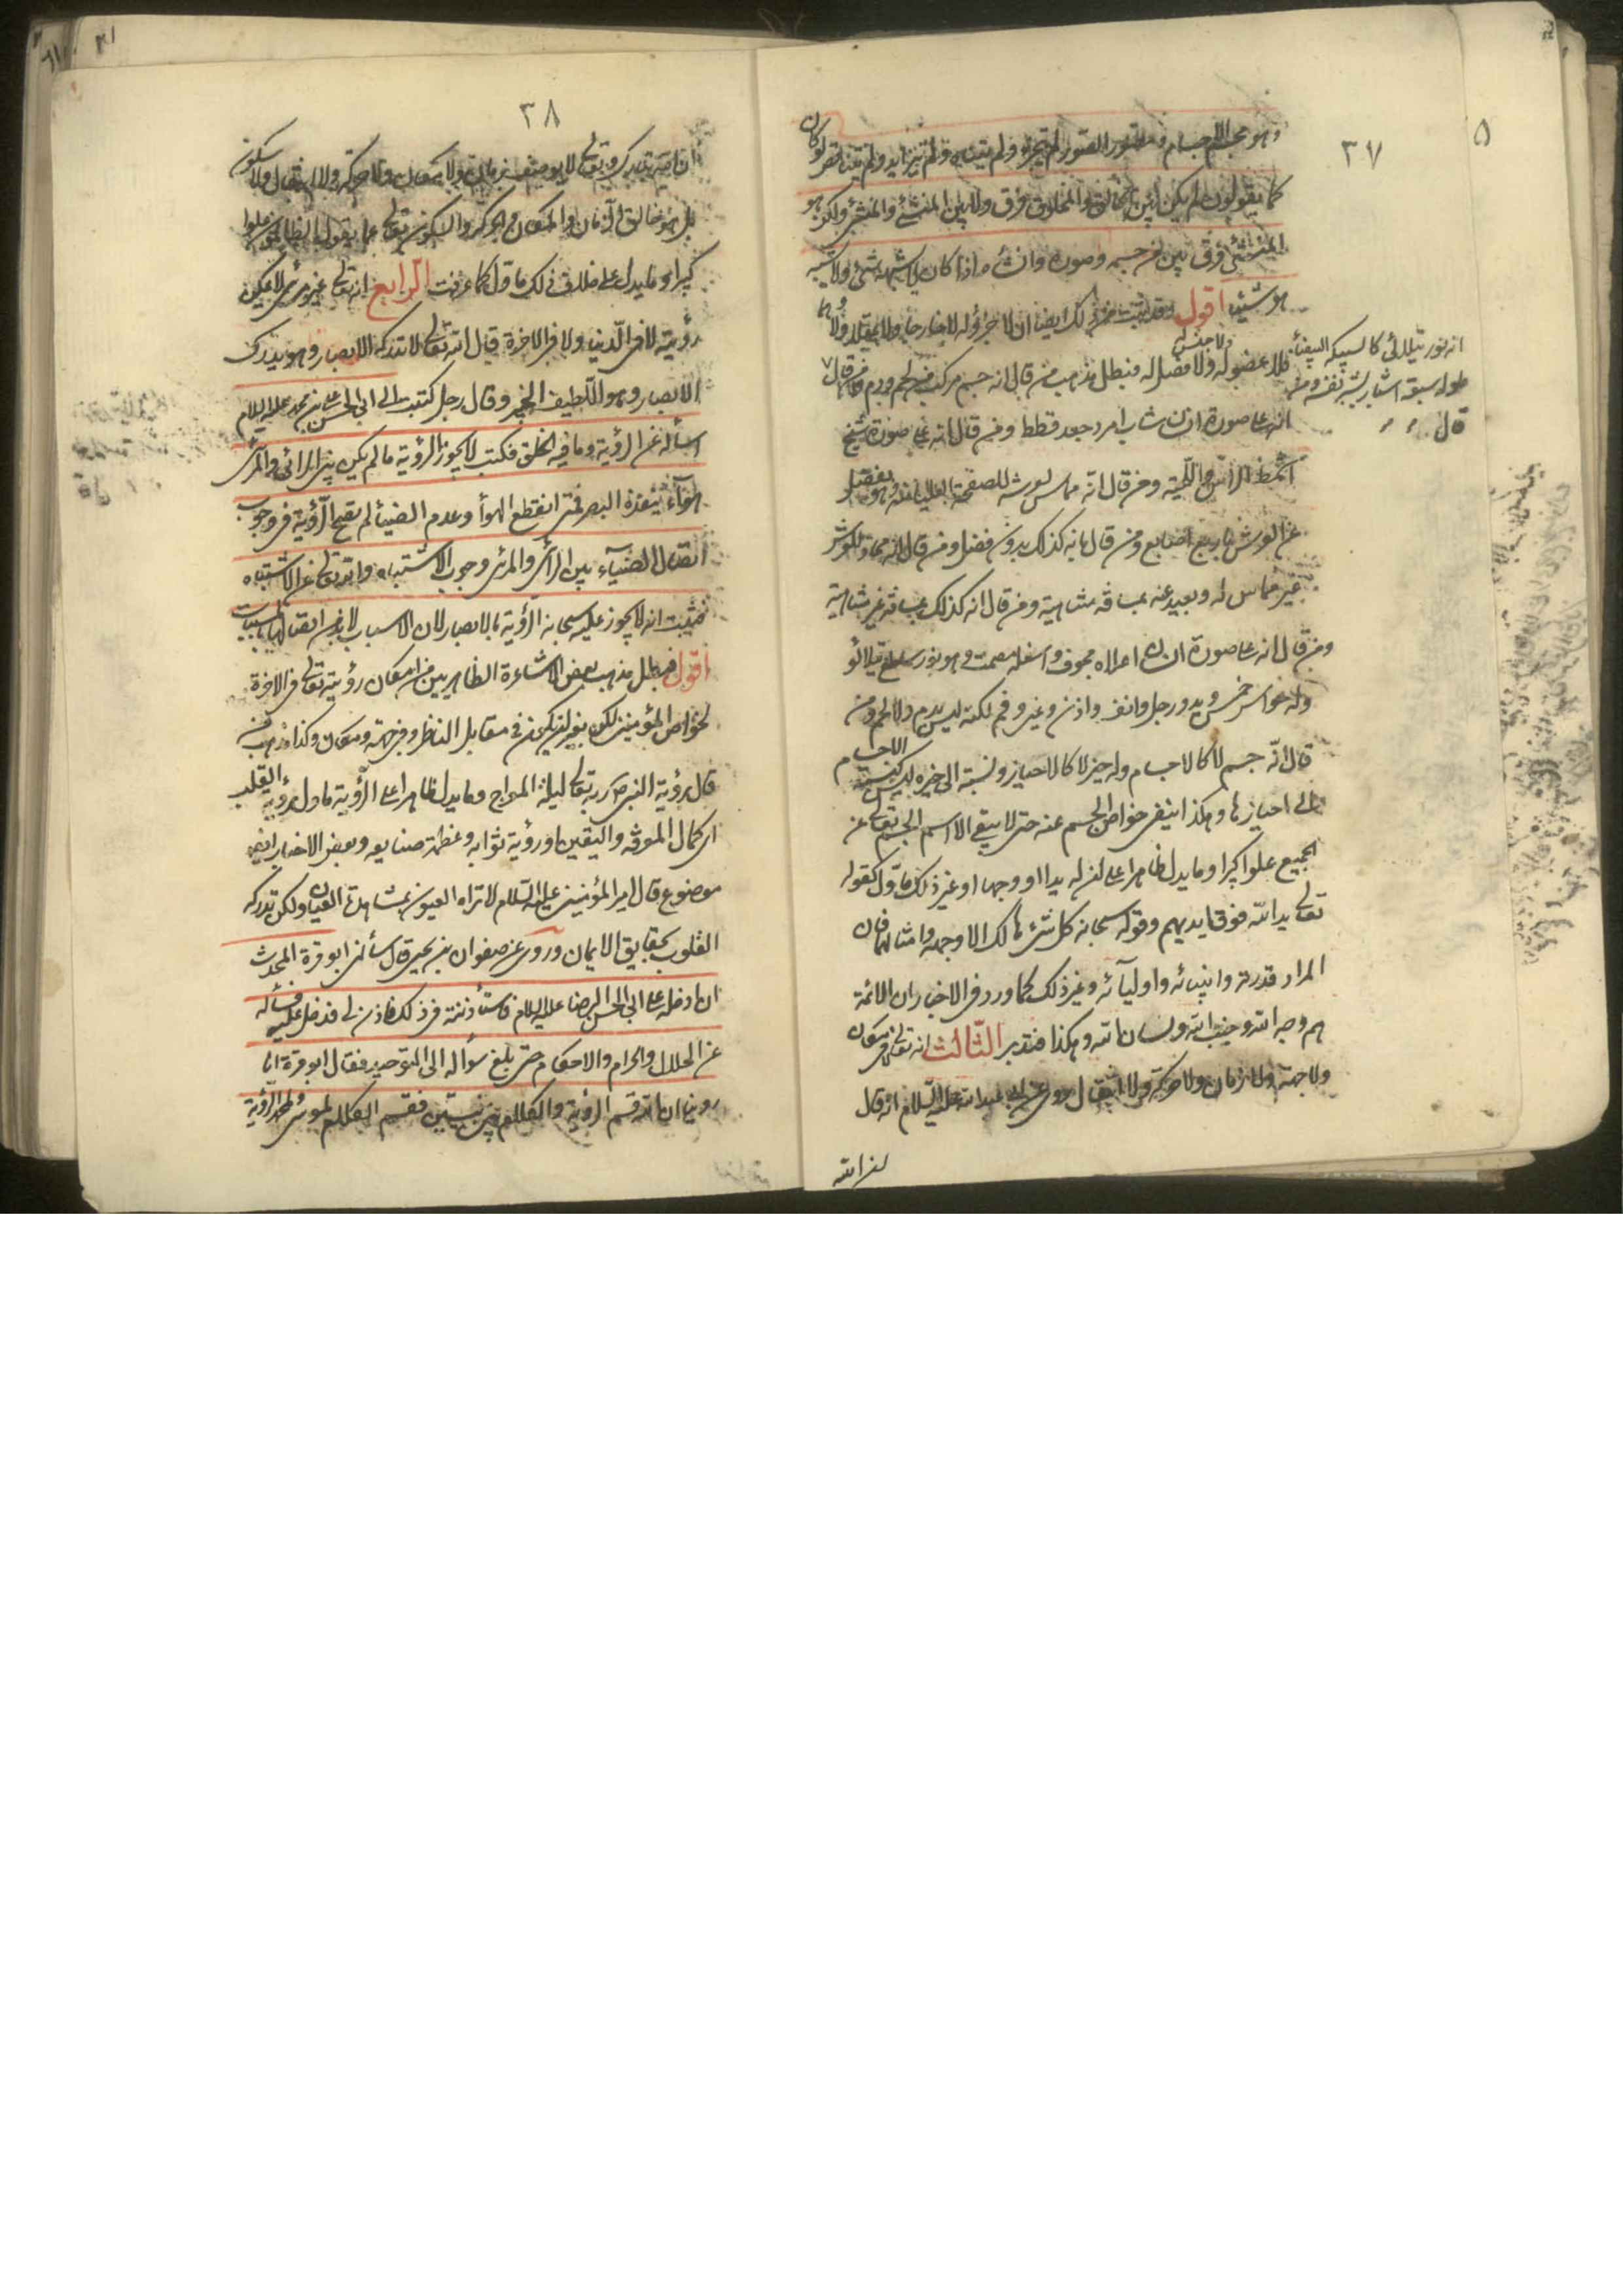 ٣٧
وهو مجسم الاجسام ومصور الصور لم يتجزء ولم يتناه ولم يتزايد ولم يتناقص لو كان
كما يقولون لم يكن بين الخالق والمخلوق فرق ولا بين المنشئ والمنشأ ولكن هو
المنشئ فرق بين من جسمه وصوره وانشأه اذا كان لا يشبهه شئ ولا يشبه
هو شيئا اقول وقد ثبت من ذلك ايضا ان لا جزؤ له لا خارجا ولا عقلا ولا وهما
فلا عضو له ولا فصل له ولا جنس له فبطل مذهب من قال انه جسم مركب من لحم ودم ومن قال
انه نور يتلألئ كالسبيكة البيضاء
طوله سبعة اشبار بشبر نفسه ومن
قال
انه على صورة انسان شاب امرد جعد قطط ومن قال انه على صورة شيخ
اشمط الرأس واللحية ومن قال انه مماس لعرشه للصفحة العليا منه وهو يفضل
عن العرش باربع اصابع ومن قال بانه كذلك بدون فضل ومن قال انه محاذ للعرش
غير مماس له وبعيد عنه بمسافة متناهية ومن قال انه كذلك بمسافة غير متناهية
ومن قال انه على صورة انسان اعلاه مجوف واسفله مصمت وهو نور ساطع يتلألؤ
وله حواس خمس ويد ورجل وانف واذن وعين وفم لكنه ليس بدم ولا لحم ومن
قال انه جسم لا كالاجسام وله حيز لا كالاحياز ونسبته الى حيزه ليس كنسبة الاجسام
الى احيازها وهكذا ينفى خواص الجسم عنه حتى لا يبقى الا اسم الجسم تعالى عن
الجميع علوا كبيرا وما يدل ظاهرا على ان له يدا او وجها او غير ذلك مأول كقوله
تعالى يد الله فوق ايديهم وقوله سبحانه كل شئ هالك الا وجهه وامثالهما فان
المراد قدرته وانبيائه واوليآئه وغير ذلك كما ورد فى الاخبار ان الائمة
هم وجه الله وجنب الله ولسان الله وهكذا فتدبر الثالث انه تعالى لا فى مكان
ولا جهة ولا زمان ولا حركة ولا انتقال روى عن ابى عبد الله عليه السلام انه قال
ان الله
٣٨
ان الله تبارك وتعالى لا يوصف بزمان ولا مكان ولا حركة ولا انتقال ولا سكون
بل هو خالق الزمان والمكان والحركة والسكون تعالى عما يقول الظالمون علوا
كبيرا وما يدل على خلاف ذلك مأول كما عرفت الرابع انه تعالى غير مرئى لا يمكن
رؤيته لا فى الدنيا ولا فى الاخرة قال الله تعالى لا تدركه الابصار وهو يدرك
الابصار وهو اللطيف الخبير وقال رجل كتبت الى ابى الحسن على بن محمد عليه السلام
اسأله عن الرؤية وما فيه الخلق فكتب لا يجوز الرؤية ما لم يكن بين الرائى والمرئى
هوآء ينفذه البصر فمتى انقطع الهوآ وعدم الضيآ لم تصح الرؤية فى وجوب
اتصال الضيآء بين الرائى والمرئى وجوب الاشتباه والله تعالى عن الاشتباه
فثبت انه لا يجوز عليه سبحانه الرؤية بالابصار لان الاسباب لا بد من اتصالها بالمسببات
اقول فبطل مذهب بعض الاشاعرة الظاهريين من امكان رؤيته تعالى فى الاخرة
لخواص المؤمنين لكن بغير ان يكون فى مقابل الناظر وفى جهة ومكان وكذا مذهب من
قال برؤية النبى ص ربه تعالى ليلة المعراج وما يدل ظاهرا على الرؤية مأول برؤية القلب
اى كمال المعرفة واليقين او رؤية ثوابه وعظمة صنايعه وبعض الاخبار ايضا
موضوع قال امير المؤمنين عليه السلام لا تراه العيون بمشاهدة العيان ولكن تدركه
القلوب بحقايق الايمان وروى عن صفوان بن يحيى قال سألنى ابو قرة المحدث
ان ادخله على ابى الحسن الرضا عليه السلام فاستأذنته فى ذلك فاذن لى فدخل عليه فسأله
عن الحلال والحرام والاحكام حتى بلغ سؤاله الى التوحيد فقال ابو قرة انا
روينا ان الله قسم الرؤية والكلام بين نبيين فقسم الكلام لموسى ولمحمد الرؤية